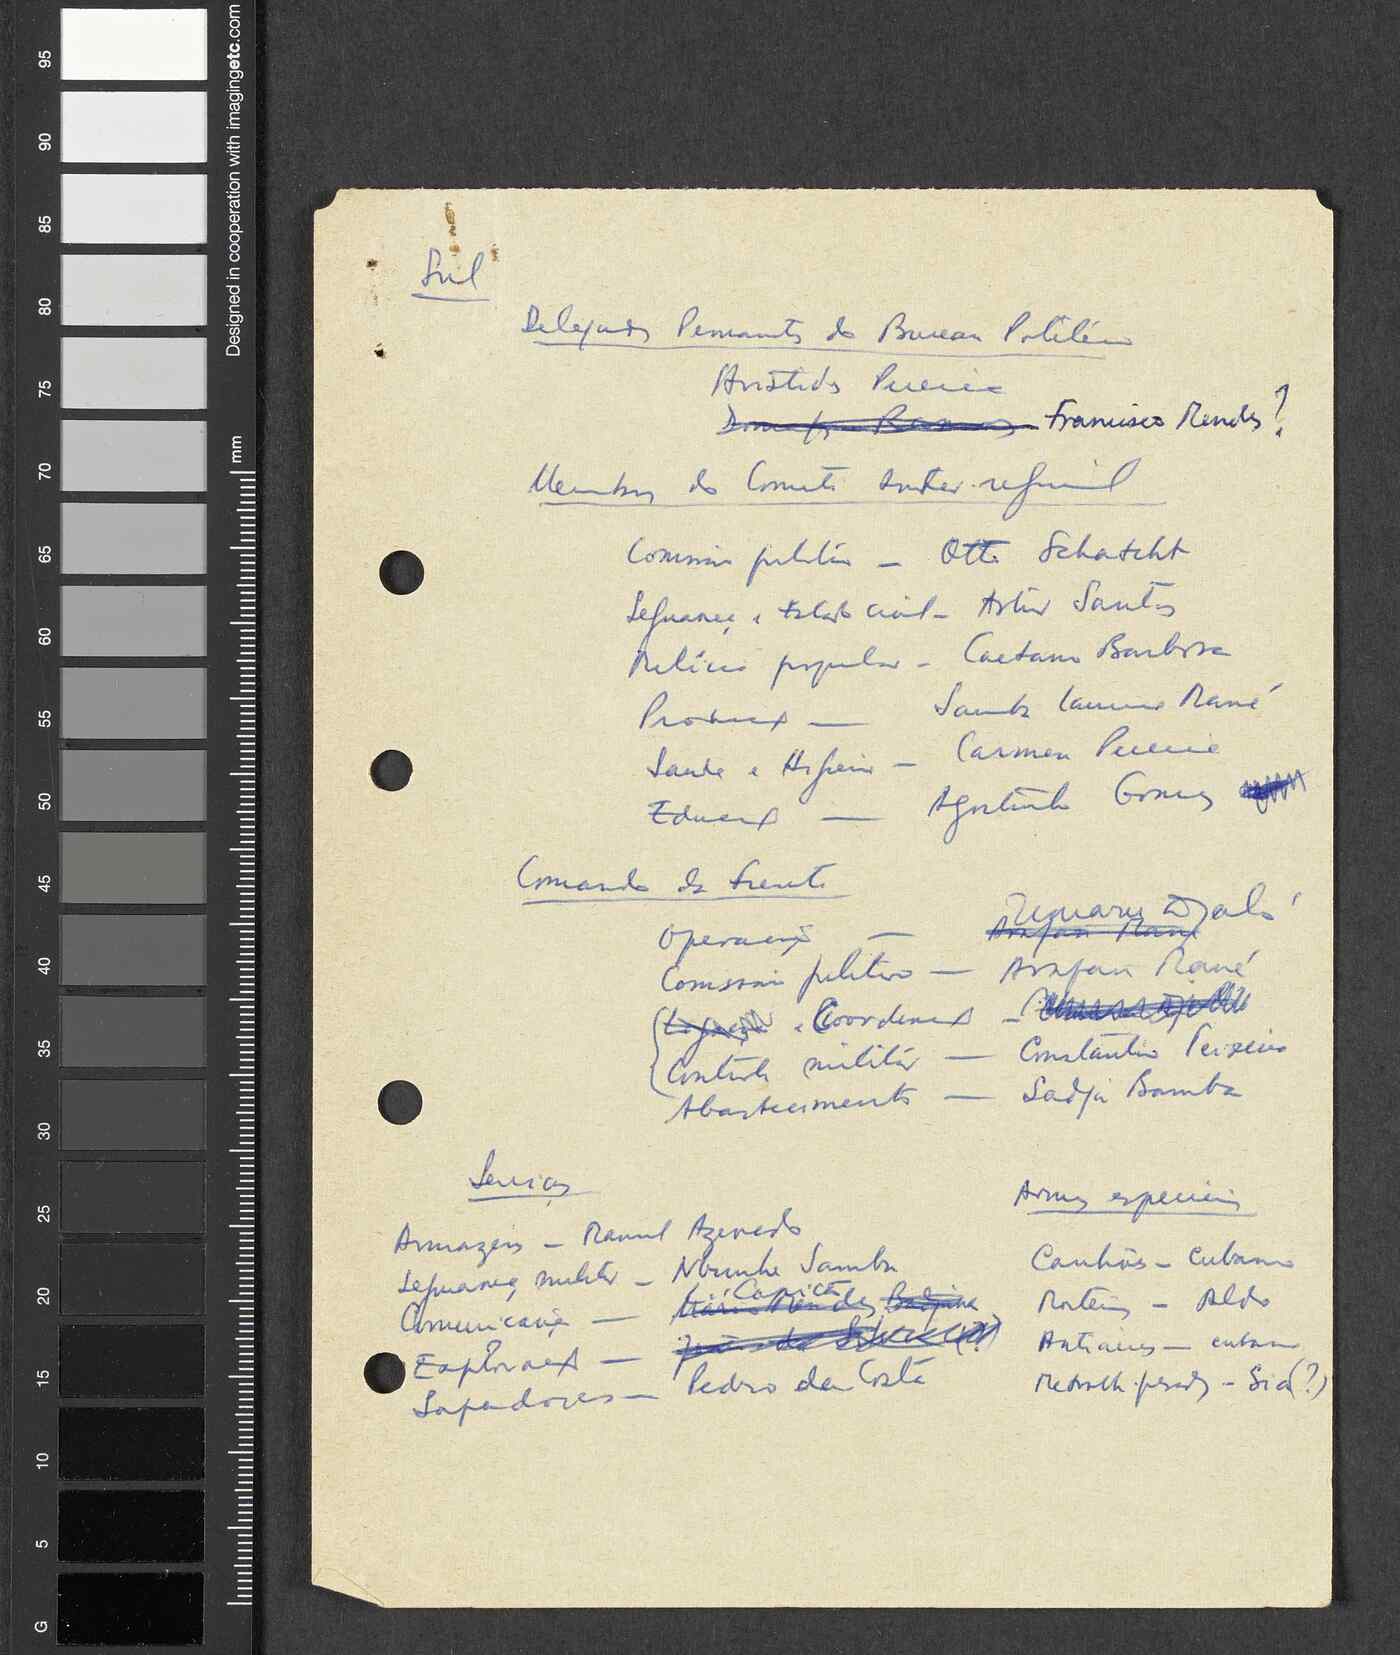 Sul
Delegados Permanentes do Bureau Político
Aristides Pereira
Domingos Ramos Francisco Mendes?
Membros do Comité Inter-regional
Comissário político — Otto Schatcht
Segurança e Estado civil — Artur Santos
Milícia popular — Caetano Barbosa
Produção — Samba Lamine Mané
Saúde e Higiene — Carmen Pereira
Educação — Agostinho Gomes
Comando da Frente
Umaru Djaló
Operações — Arafan Mané
Comissário político — Arafan Mané
Ligação e Coordenação —
Controle militar — Constantino Teixeira
Abastecimento — Sadjá Bamba
Serviços
Armazéns — Manuel Azevedo
Segurança militar — Nbunhe Samba
Comunicações —
Exploração —
Sapadores — Pedro da Costa
Armas especiais
Canhões — Cubano
Morteiros — Aldo
Antiaéreas — cubano
Metralh. pesadas — Sid (?)
95
90
85
80
75
70
65
60
55
50
45
40
35
30
25
20
15
10
5
G
mm
Designed in cooperation with imagingetc.com